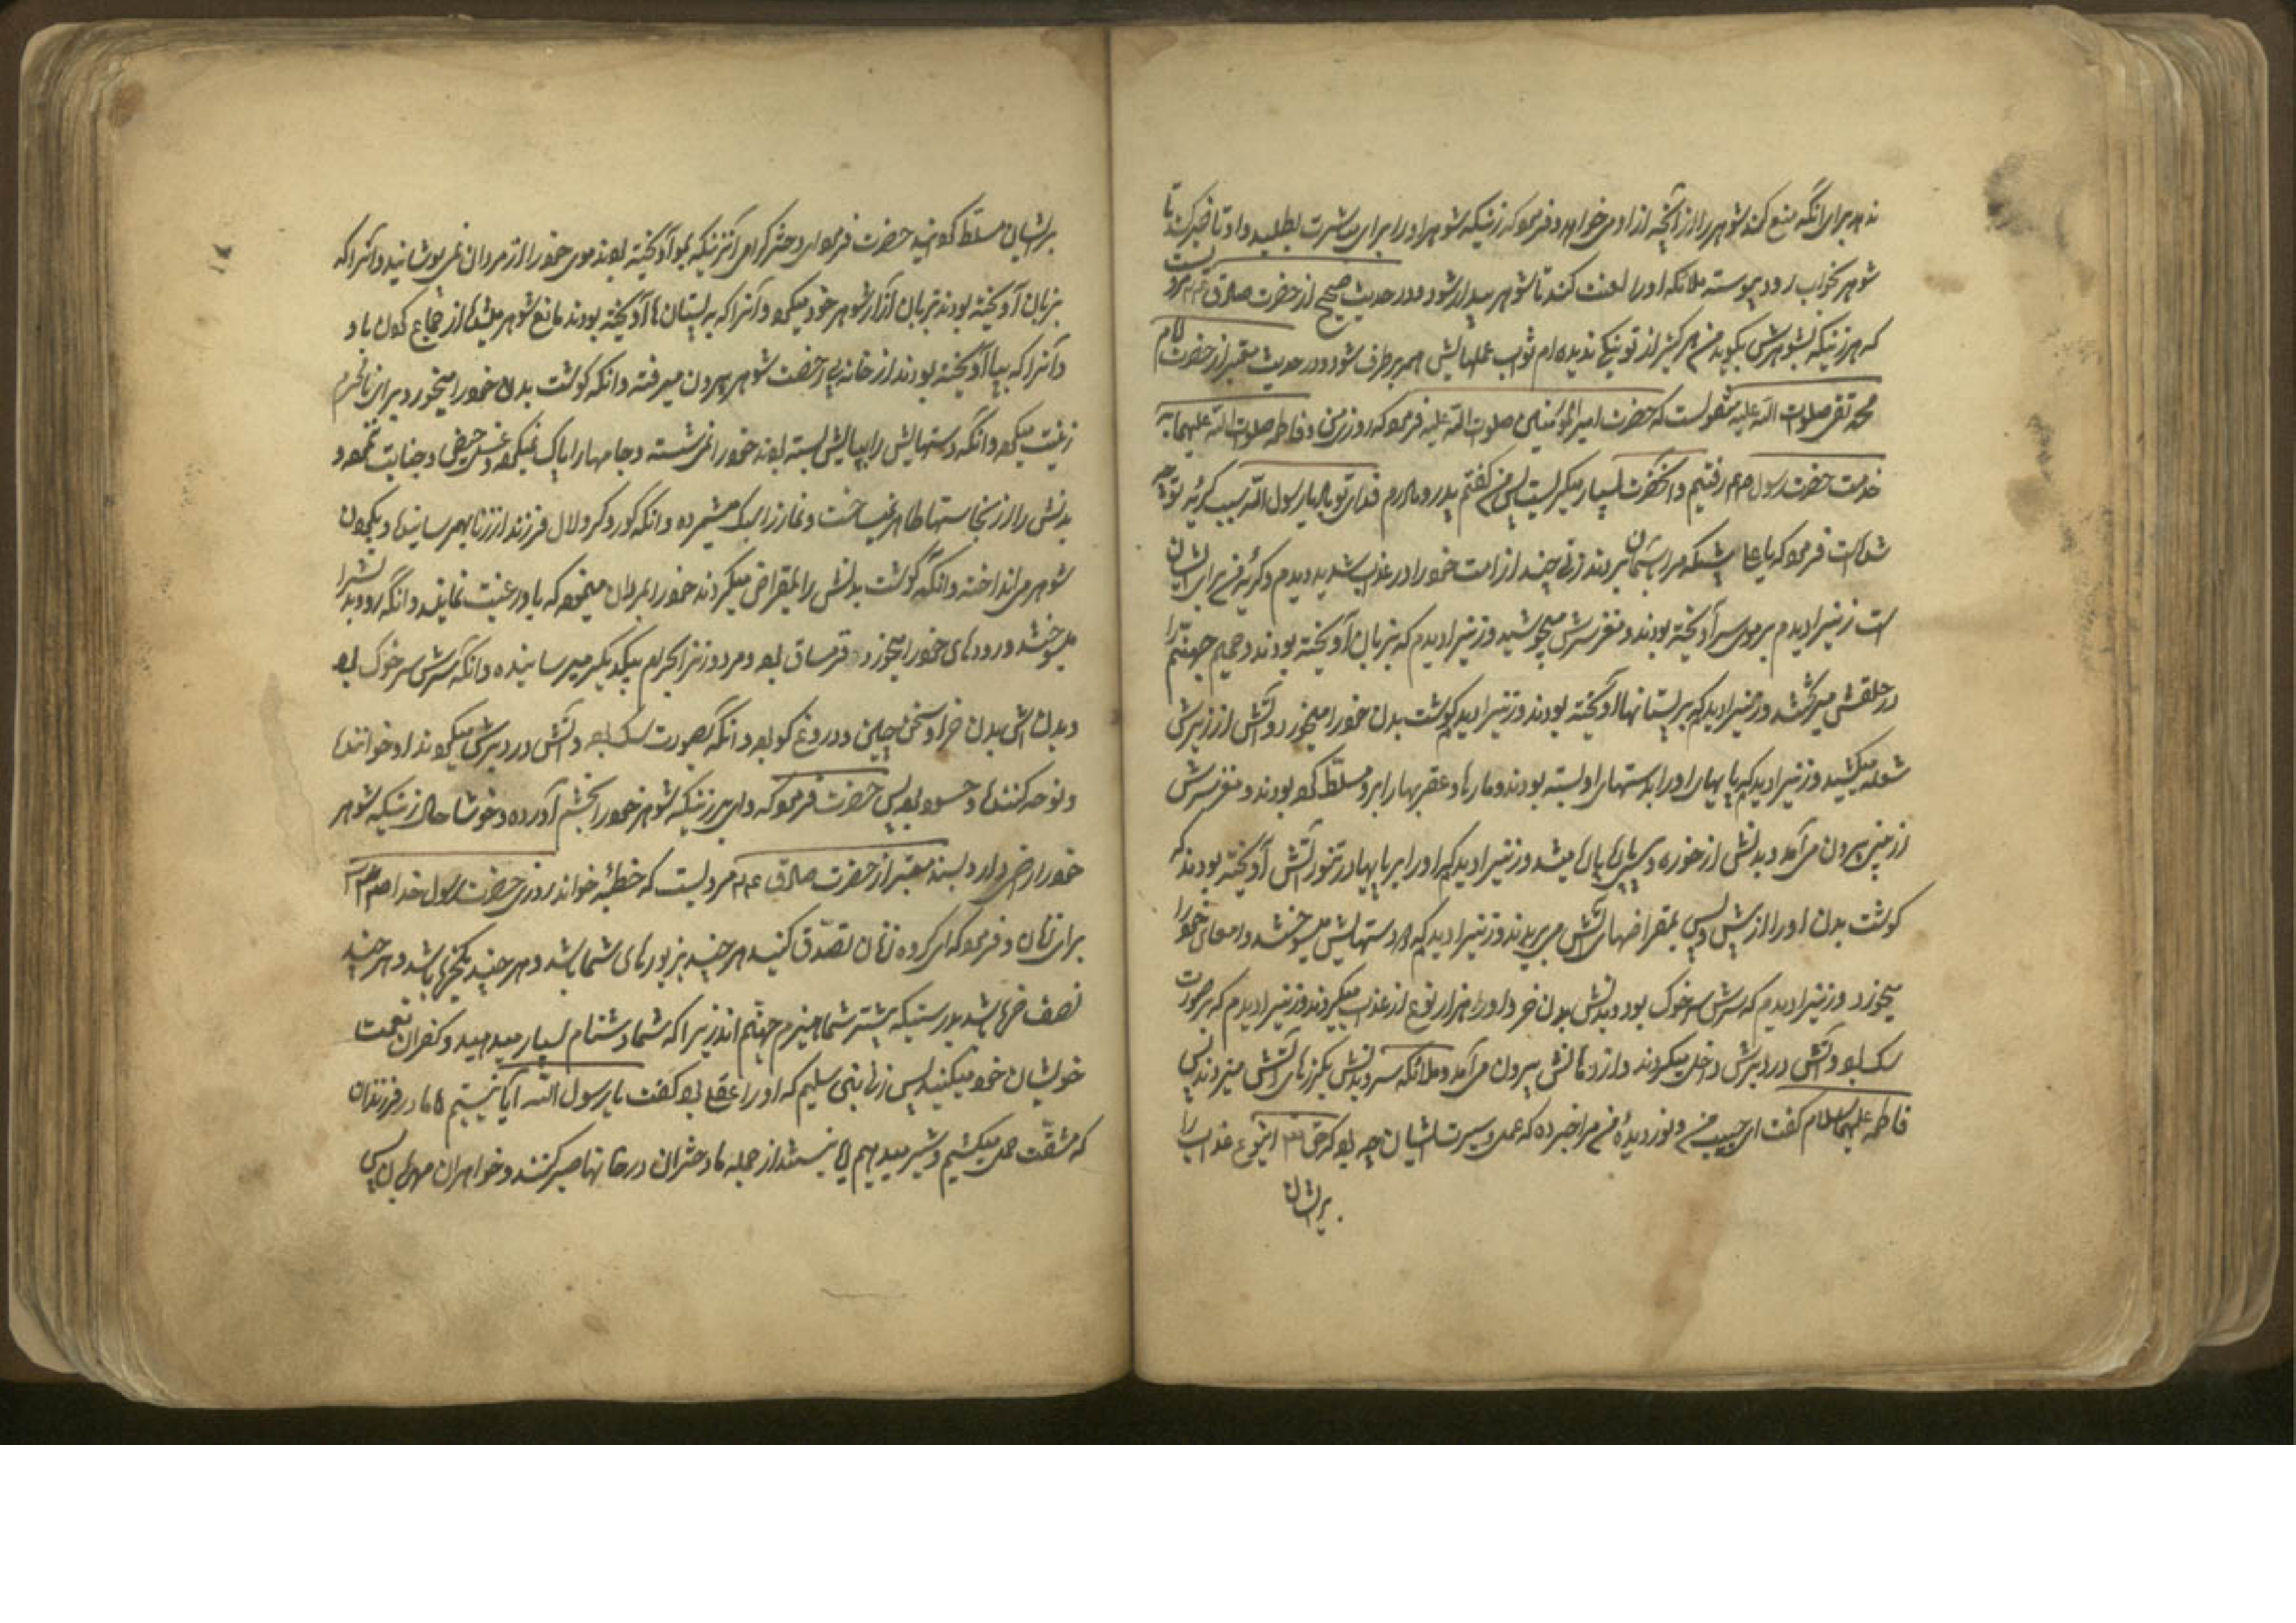 ندهد برای آنکه منع کند شوهر را از آنچه از او می‌خواهد و فرمود که زنیکه شوهر او را برای مباشرت بطلبد و او تأخیر کند تا
شوهر بخواب رود پیوسته ملائکه او را لعنت کنند تا شوهر بیدار شود و در حدیث صحیح از حضرت صادق مرویست
که هر زنیکه بشوهرش بگوید من هرگز از تو نیکی ندیده‌ام ثواب عملهایش همه برطرف شود و در حدیث معتبر از حضرت امام
محمد تقی صلوات الله علیه منقولست که حضرت امیر المؤمنین صلوات الله علیه فرمود که روزی من و فاطمه صلوات الله علیهما به
خدمت حضرت رسول رفتیم و آنحضرت بسیار میگریست پس من گفتم پدر و مادرم فدای تو باد یا رسول الله سبب گریه تو چه
شده است فرمود که یا علی شبیکه مرا بآسمان بردند زنی چند از امت خود را در عذاب شدید دیدم و گریه من برای ایشان
است زنیرا دیدم بر موی سر آویخته بودند و مغز سرش میجوشید و زنیرا دیدم که بزبان آویخته بودند و حمیم جهنم را
در حلقش میریختند و زنیرا دیدم که بر پستانها آویخته بودند و زنیرا دیدم که گوشت بدن خود را میخورد و آتش از زیرش
شعله میکشید و زنیرا دیدم که پایهای او را بدستهای او بسته بودند و مارها و عقربها را بر او مسلط کرده بودند و مغز سرش
از بینی بیرون می‌آمد و بدنش از خوره و پیسی پاره پاره میشد و زنیرا دیدم که او را بر پایها در تنور آتش آویخته بودند که
گوشت بدن او را از پیش و پس بمقراضهای آتش می‌بریدند و زنیرا دیدم که رو و دستهایش میسوختند و امعای خود را
میخورد و زنیرا دیدم که سرش سر خوک بود و بدنش بدن خر و او را هزار نوع از عذاب میکردند و زنیرا دیدم که بر صورت
سگ بود و آتش در دبرش داخل میکردند و از دهانش بیرون می‌آمد و ملائکه سر و بدنش بگرزهای آتش میزدند پس
فاطمه علیهاالسلام گفت ای حبیب من و نور دیده من مرا خبر ده که عمل و سیرت ایشان چه بود که حق اینوع عذاب را
بر ایشان
بر ایشان مسلط گردانید حضرت فرمود ای دختر گرامی آنزنیکه بمو آویخته بودند موی خود را از مردان نمی‌پوشانید و آنرا که
بزبان آویخته بودند بزبان آزار شوهر خود میکرد و آنرا که به پستانها آویخته بودند مانع شوهر میشد از جماع کردن با او
و آنرا که بپا آویخته بودند از خانه بی رخصت شوهر بیرون میرفته و آنکه گوشت بدن خود را میخورد برای نامحرم
زینت میکرد و آنکه دستهایش را بپایش بسته بودند خود را نمی‌شسته و جامها را پاک نمیکرد و غسل حیض و جنابت نمیکرد و
بدنش را از نجاستها طاهر نمیساخت و نماز را سبک میشمرده و آنکه کور و کر و لال فرزند از زنا بهمرسانیده و بگردن
شوهر می‌انداخته و آنکه گوشت بدنش را بمقراض میکردند خود را بمردان مینمود که باو رغبت نمایند و آنکه رو و بدنش را
میسوختند و رودهای خود را میخورد قرمساق بود و مرد و زن را بحرام بیکدیگر میرسانیده و آنکه سرش سر خوک بود
و بدنش بدن خر او سخن چین و دروغ گو بود و آنکه بصورت سگ بود و آتش در دبرش میکردند او خواننده
و نوحه کننده و حسود بود پس حضرت فرمود که وای بر زنیکه شوهر خود را بخشم آورده و خوشا حال زنیکه شوهر
خود را راضی دارد و بسند معتبر از حضرت صادق مرویست که خطبه خواند روزی حضرت رسول خدا
برای زنان و فرمود که ای گروه زنان تصدق کنید هر چند بزیورهای شما باشد و هر چند یکخرما باشد و هر چند
نصف خرما باشد بدرستیکه بیشتر شما هیزم جهنم‌اند زیرا که شما دشنام بسیار میدهید و کفران نعمت
خویشان خود میکنید پس زنی از بنی سلیم که او را عقلی بود گفت یا رسول الله آیا نیستیم ما مادر فرزندان
که مشقت حمل میکشیم و شیر میدهیم آیا نیستند از جمله ما دختران در خانها صبر کننده و خواهران مهربان پس